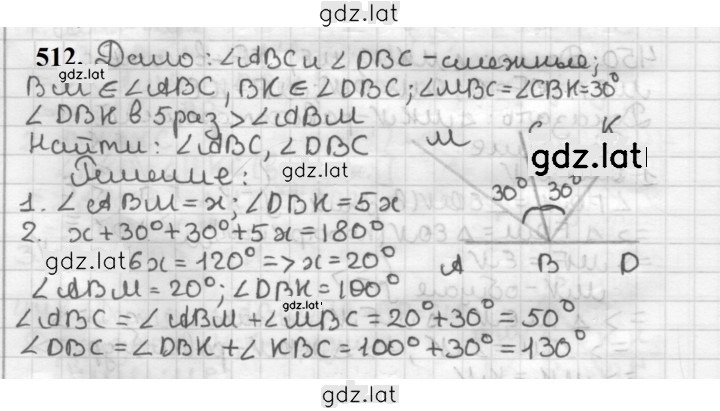 gdz.lat
512. Дано: ∠ABC и ∠DBC - смежные;
BM ∈ ∠ABC, BK ∈ ∠DBC; ∠MBC=∠CBK=30°
gdz.lat
∠DBK в 5 раз > ∠ABM
Найти: ∠ABC, ∠DBC
gdz.lat
Решение:
1. ∠ABM = x; ∠DBK = 5x
2. x+30°+30°+5x=180°
gdz.lat 6x = 120° => x = 20°
∠ABM = 20°; ∠DBK = 100°
gdz.lat
∠ABC = ∠ABM + ∠MBC = 20°+30° = 50°
∠DBC = ∠DBK + ∠KBC = 100°+30° = 130°
M C K
gdz.lat
30° 30°
A B D
gdz.lat